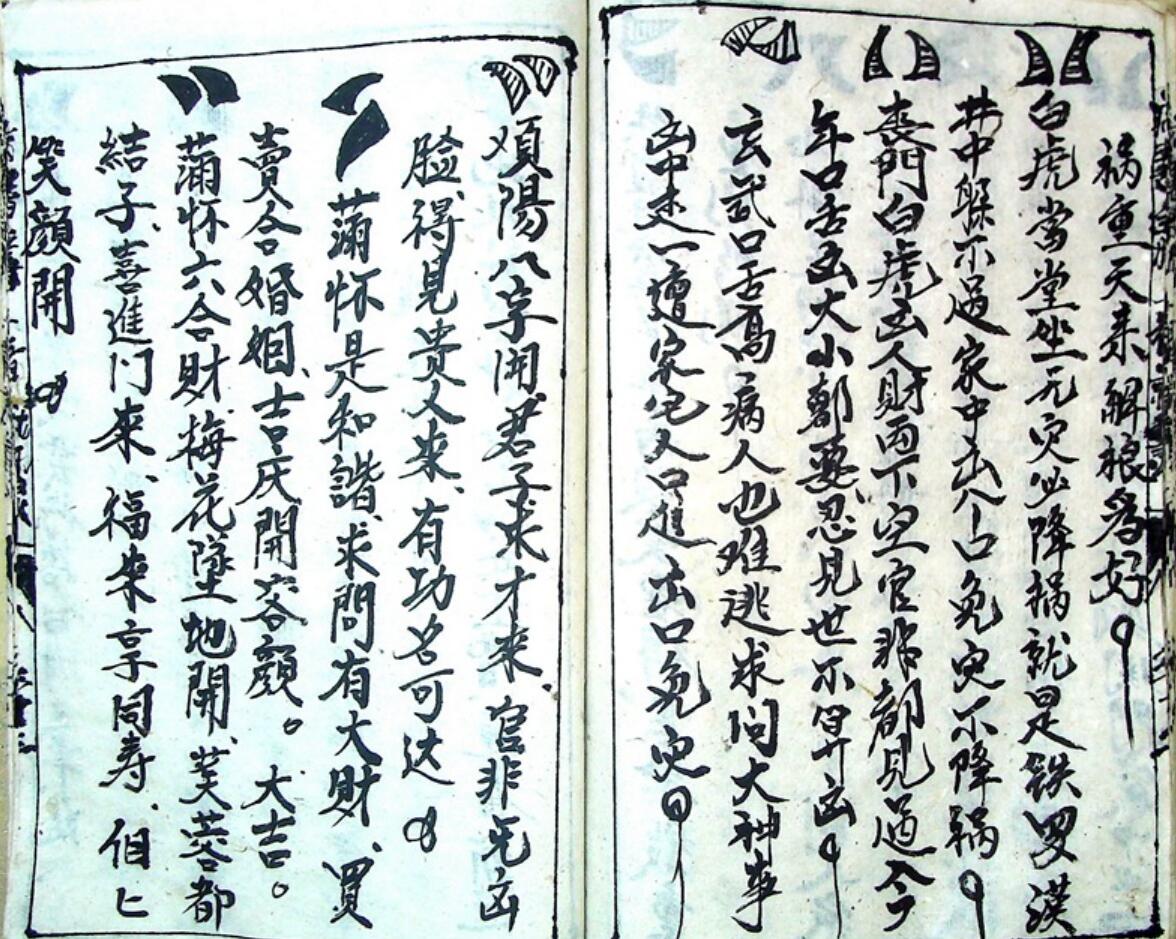 祸重天来解禳為好
白虎當堂坐无灾必降祸就是铁罗漢
井中躲不过家中出入口免灾不降祸
喪門白虎凶人財两下空官非都見过今
年口舌凶大小都要忍見世不昇凶
玄武口舌馬病人也难逃求问大神事
凶中走一遭家宅人口進出口免灾
順陽八字開君子求才来、官非无凶
脸、得見贵人来、有功名可达
滿怀是和諧、求問有大財、買
賣合婚姻、吉慶開容顏。大吉。
滿怀六合財梅花墜地開、芙蓉都
結子、喜進门来、福来享同寿、
笑顏開